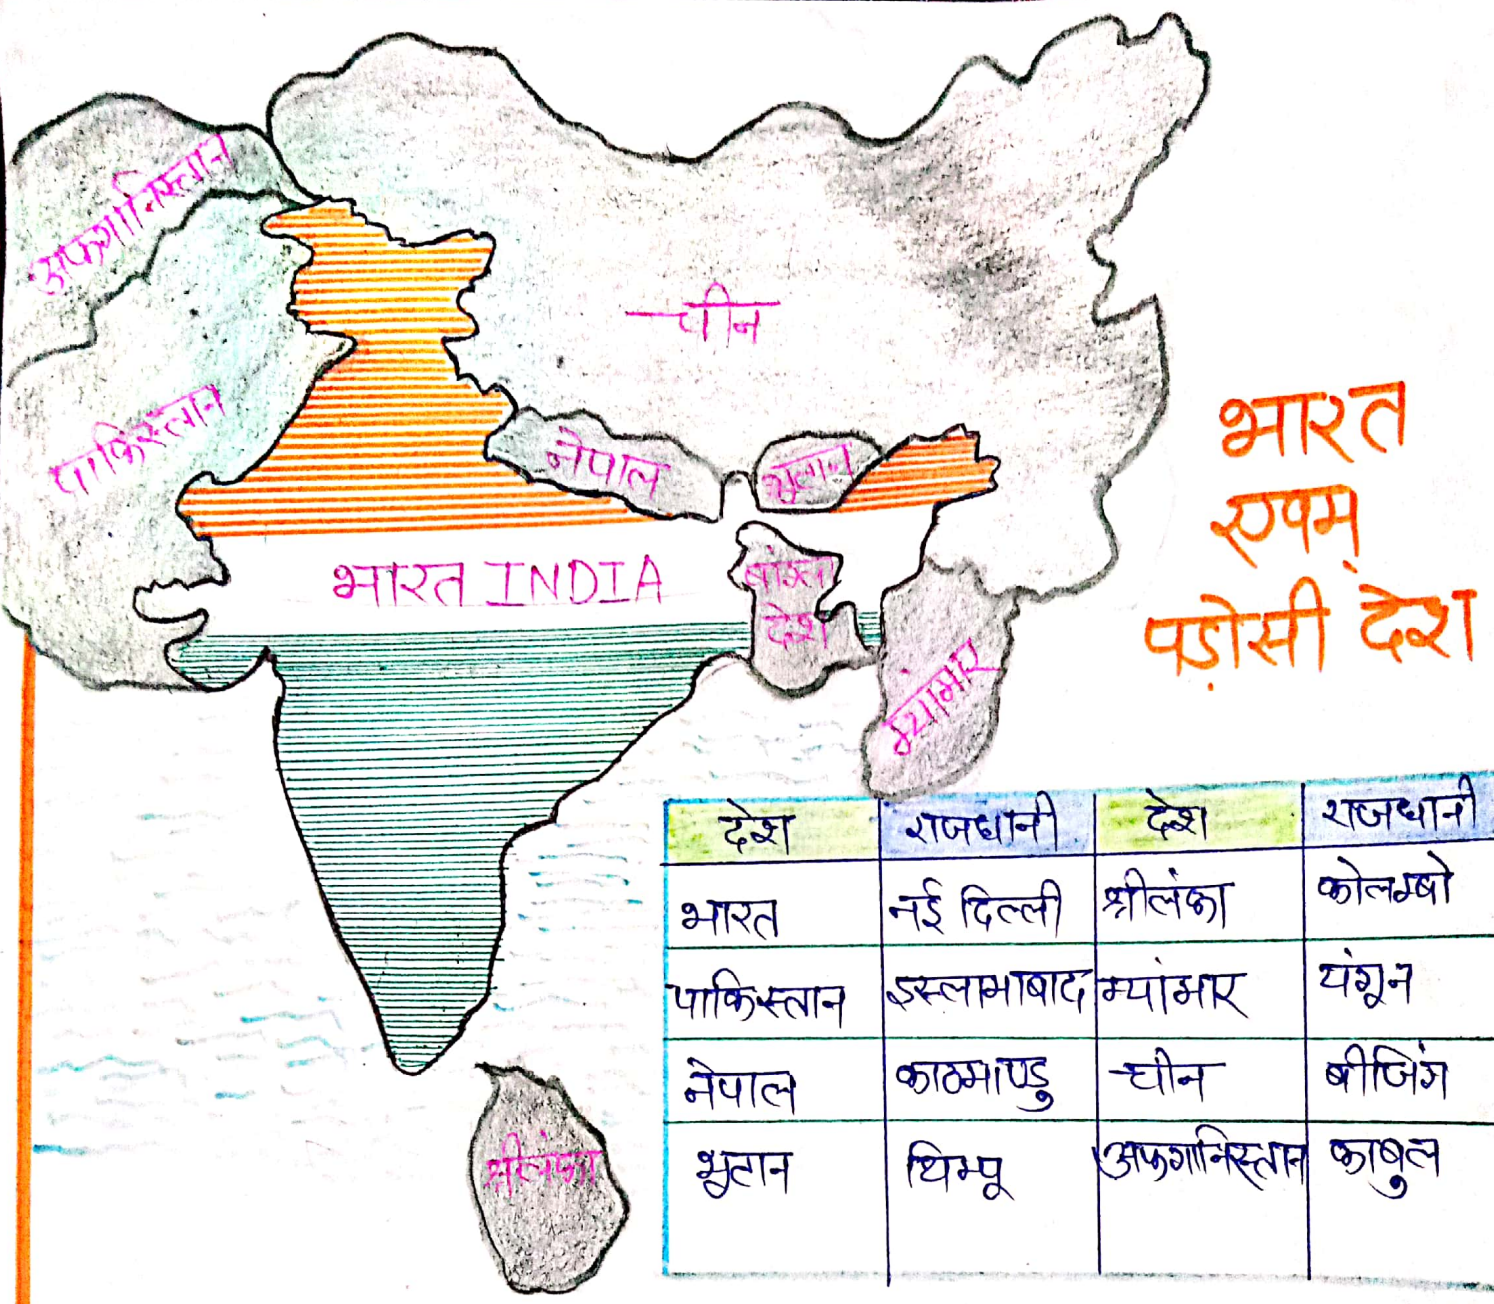 अफगानिस्तान
चीन
पाकिस्तान
नेपाल
भुटान
भारत INDIA
बांग्ला
देश
म्यांमार
श्रीलंका
भारत
एवम्
पड़ोसी देश
देश राजधानी देश राजधानी
भारत नई दिल्ली श्रीलंका कोलम्बो
पाकिस्तान इस्लामाबाद म्यांमार यंगून
नेपाल काठमाण्डु चीन बीजिंग
भुटान थिम्पू अफगानिस्तान काबुल